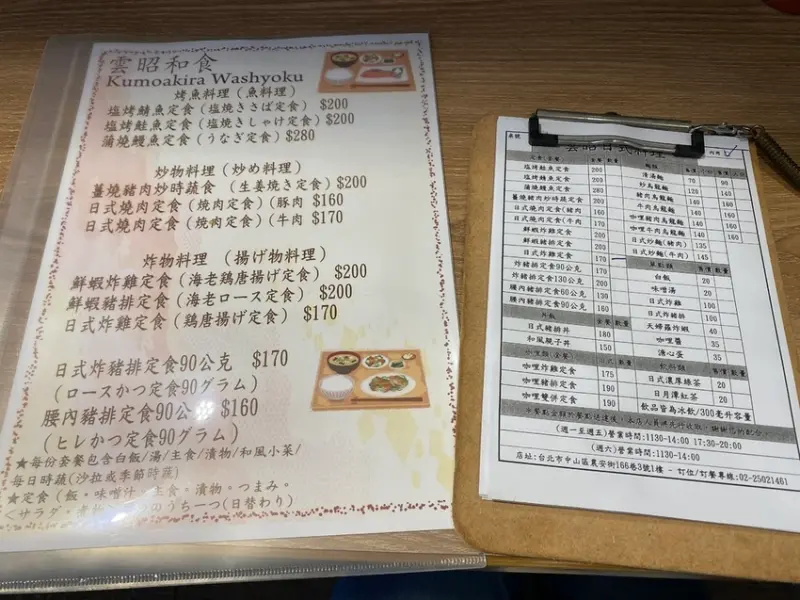 雲昭和食
Kumoakira Washyoku
烤魚料理(魚料理)
塩烤鯖魚定食(塩焼きさば定食) $200
塩烤鮭魚定食(塩焼きしゃけ定食) $200
蒲燒鰻魚定食(うなぎ定食) $280
炒物料理(炒め料理)
薑燒豬肉炒時蔬食 (生姜焼き定食) $200
日式燒肉定食(焼肉定食)(豚肉 $160
日式燒肉定食(焼肉定食)(牛肉 $170
炸物料理 (揚げ物料理)
鮮蝦炸雞定食(海老鶏唐揚げ定食) $200
鮮蝦豬排定食(海老ロース定食) $200
日式炸雞定食(鶏唐揚げ定食) $170
日式炸豬排定食90公克 $170
(ロースかつ定食90グラム)
腰內豬排定食90公 $160
(ヒレかつ定食90グラム)
★每份套餐包含白飯/湯/主食/漬物/和風小菜/
每日時蔬(沙拉或季節時蔬)
★定食(飯・味噌汁・主食・漬物・つまみ。
<サラダ・ のうち一つ(日替わり)
桌號
雲昭日式料理
內用
定食/套餐 套餐 數量
塩烤鮭魚定食 200
塩烤鯖魚定食 200
蒲燒鰻魚定食 280
薑燒豬肉炒時蔬定食 200
日式燒肉定食(豬肉 160
日式燒肉定食(牛肉 170
鮮蝦炸雞定食 200
鮮蝦豬排定食 200
日式炸雞定食 170
炸豬排定食90公克 170
炸豬排定食130公克 200
腰內豬排定食60公克 130
腰內豬排定食90公克 160
丼飯 套餐 數量
日式豬排丼 180
和風親子丼 150
數量
咖哩炸雞定食 175
咖哩豬排定食 190
咖哩雙併定食 190
麵類
清湯麵 70 90
炒烏龍麵 120 140
豬肉烏龍麵 140 160
牛肉烏龍麵 140 160
咖哩豬肉烏龍麵 140 160
咖哩牛肉烏龍麵 140 160
日式炒麵(豬肉) 135
日式炒麵(牛肉) 145
單點類 售價 數量
白飯 20
味噌湯 20
日式炸雞 100
日式炸豬排 100
天婦羅炸蝦 40
咖哩醬 35
溏心蛋 35
飲料類 售價 數量
日式濃厚綠茶 20
日月潭紅茶 20
飲品皆為冰飲/300毫升容量
(週一至週五)營業時間:1130-14:00 17:30-20:00
(週六)營業時間:1130-14:00
店址:台北市中山區農安街166巷3號1樓 - 訂位/訂餐專線:02-25021461